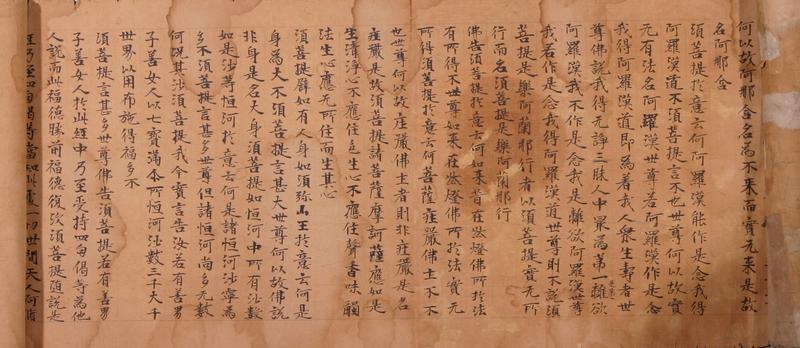 何以故阿那含名為不来而實无来是故
名阿那含
須菩提於意云何阿羅漢能作是念我得
阿羅漢道不須菩提言不也世尊何以故實
无有法名阿羅漢世尊若阿羅漢作是念
我得阿羅漢道即為著我人衆生壽者世
尊佛說我得无諍三昧人中㝡為第一離欲
阿羅漢我不作是念我是離欲阿羅漢世尊
我若作是念我得阿羅漢道世尊則不說須
菩提是樂阿蘭那行者以須菩提實无所
行而名須菩提是樂阿蘭那行
佛告須菩提於意云何如来昔在然燈佛所於法
有所得不世尊如来在然燈佛所於法實无
所得須菩提於意云何菩薩莊嚴佛土不不
也世尊何以故莊嚴佛土者則非莊嚴是名
莊嚴是故須菩提諸菩薩摩訶薩應如是
生清淨心不應住色生心不應住聲香味觸
法生心應无所住而生其心
須菩提譬如有人身如須弥山王於意云何是
身為大不須菩提言甚大世尊何以故佛說
非身是名大身須菩提如恒河中所有沙數
如是沙等恒河於意云何是諸恒河沙寧為
多不須菩提言甚多世尊但諸恒河尚多无數
何況其沙須菩提我今實言告汝若有善男
子善女人以七寶滿尒所恒河沙數三千大千
世界以用布施得福多不
須菩提言甚多世尊佛告須菩提若有善男
子善女人於此經中乃至受持四句偈等為他
人說而此福德勝前福德復次須菩提随說是
經乃至四句偈等當知此處一切世間天人阿脩